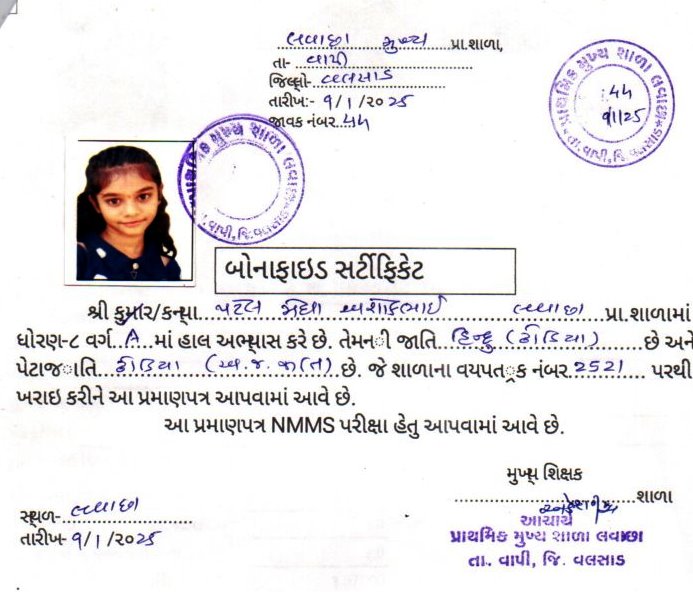 લવાછા મુખ્ય પ્રા.શાળા,
તા- વાપી
જિલ્લો- વલસાડ
તારીખ:- ૧/૧/૨૦૨૫
જાવક નંબર.. ૪૫
પ્રાથમિક મુખ્ય શાળા લવાછા
તા. વાપી, જિ. વલસાડ
૧/૧/25
પ્રાથમિક મુખ્ય શાળા લવાછા
તા. વાપી, જિ. વલસાડ
બોનાફાઇડ સર્ટીફિકેટ
શ્રી કુમાર/કન્યા પટેલ અશોકભાઈ લવાછા પ્રા.શાળામાં
ધોરણ-૮ વર્ગ A માં હાલ અભ્યાસ કરે છે. તેમની જાતિ હિન્દુ (ઢોડિયા) છે અને
પેટાજાતિ ઢોડિયા (અ.જ.જાતિ) છે. જે શાળાના વયપત્રક નંબર 2521 પરથી
ખરાઇ કરીને આ પ્રમાણપત્ર આપવામાં આવે છે.
આ પ્રમાણપત્ર NMMS પરીક્ષા હેતુ આપવામાં આવે છે.
મુખ્ય શિક્ષક
શાળા
સ્થળ- લવાછા
તારીખ- ૧/૧/૨૦૨૫
આચાર્ય
પ્રાથમિક મુખ્ય શાળા લવાછા
તા. વાપી, જિ. વલસાડ